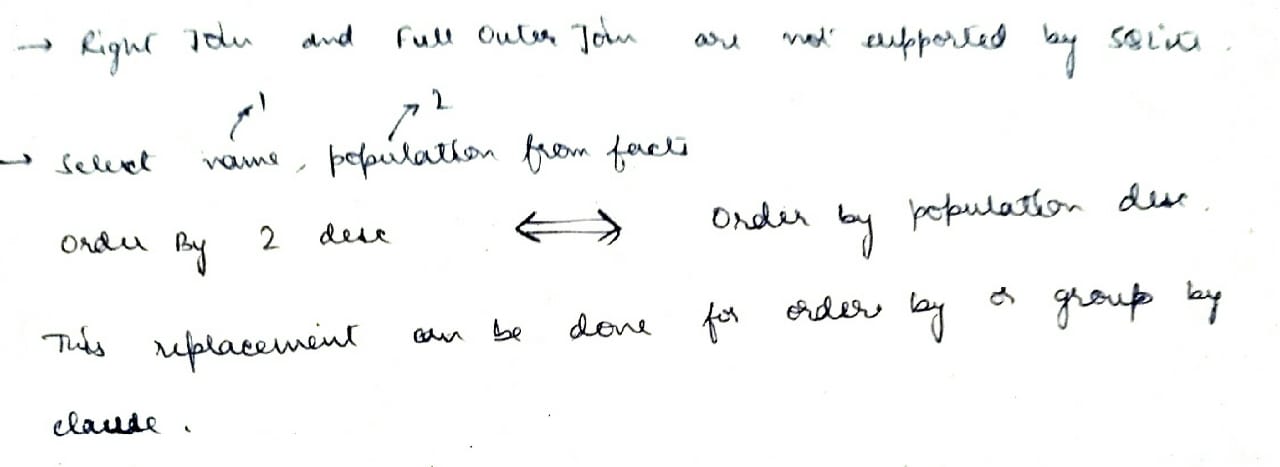 → Right Join and Full Outer Join are not supported by SQLite.
1 2
→ Select name, population from facts
Order By 2 desc ⟺ Order by population desc.
This replacement can be done for order by or group by
clause.